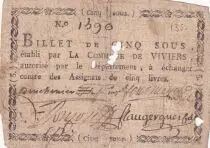 (cinq sous.)
N.o 1390
BILLET DE CINQ SOUS
établi par LA COMMUNE DE VIVIERS,
autorisé par le département, à échanger
contre des Assignats de cinq livres.
Flaugergues
(Cinq sous.)